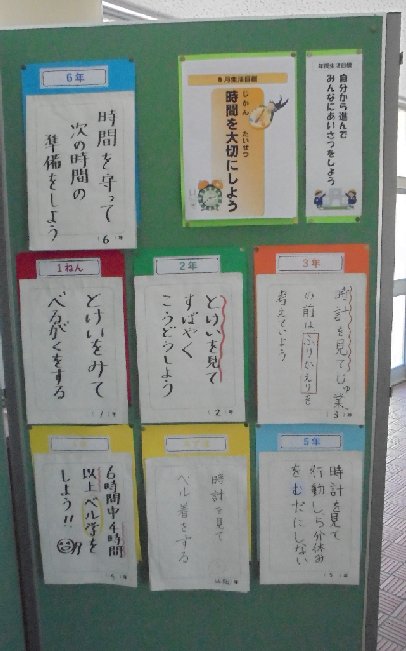 6年
時間を守って
次の時間の
準備をしよう
6年
月生活目標
じかん たいせつ
時間を大切にしよう
年間生活目標
自分から進んで
みんなにあいさつをしよう
1ねん
とけいをみて
べるがくをする
1年
2年
とけいを見て
すばやく
こうどうしよう
2年
3年
時計を見てじゅ業
の前はふりかえりを
考えていよう
3年
6時間中4時間
以上ベル学を
しよう!!
時計を見て
ベル着をする
5年
時計を見て
行動し5分休み
をむだにしない
5年